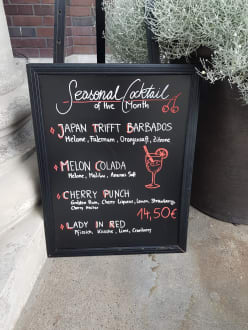 Seasonal Cocktail
of the Month
JAPAN TRIFFT BARBADOS
Melone, Falernum, Orangensaft, Zitrone
MELON COLADA
Melone, Malibu, Ananas Saft
CHERRY PUNCH
Golden Rum, Cherry Liqueur, Lemon, Strawberry,
Cherry
14,50€
LADY IN RED
Pfirsich, Kirsche, Limi, Cranberry